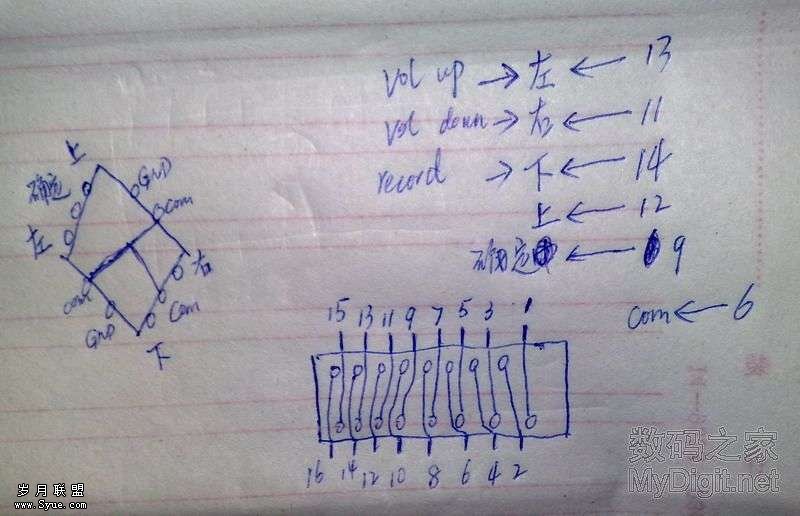 vol up → 左 ← 13
vol down → 右 ← 11
record → 下 ← 14
上 ← 12
确定 ← 9
com ← 6
上
确定
GND
com
左
右
com
com
GND
下
15 13 11 9 7 5 3 1
16 14 12 10 8 6 4 2
数码之家
MyDigit.net
岁月联盟
www.Syue.com